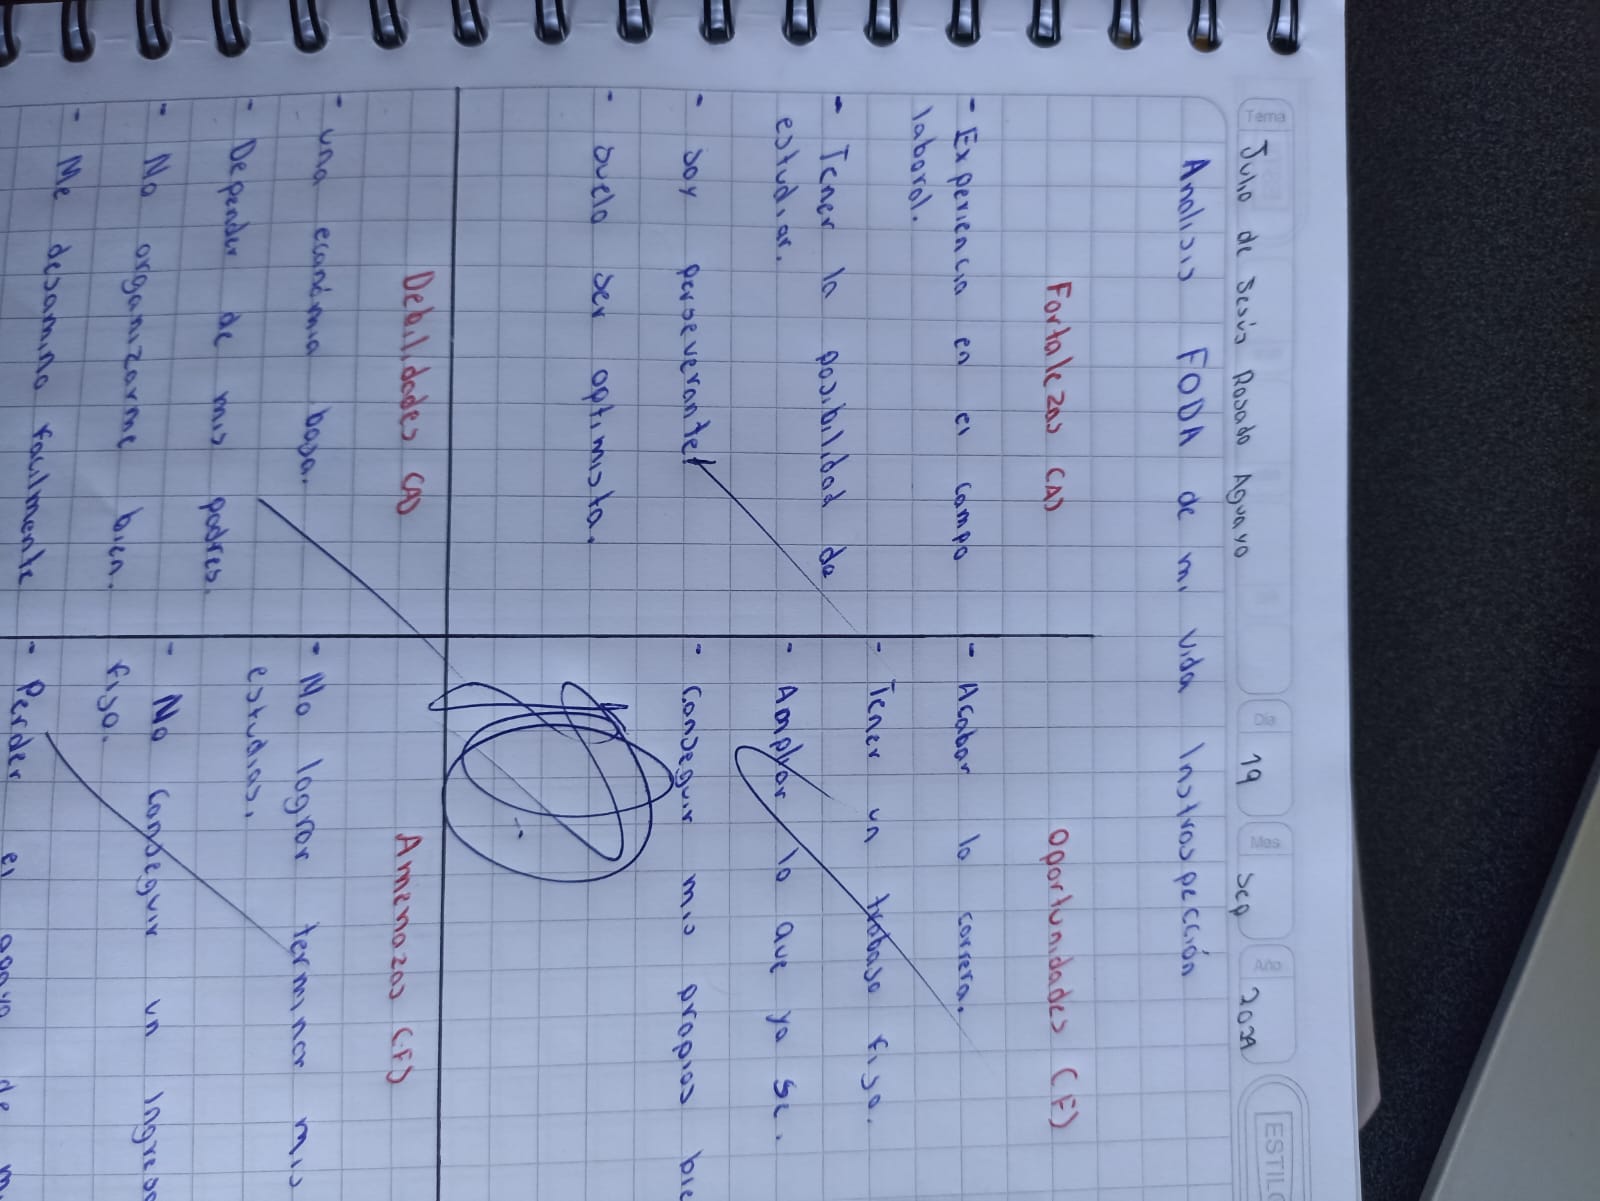 Tema
Julio de Jesús Rosado Aguayo
Día
19
Mes
Sep
Año
2024
ESTILO
Analisis FODA de mi vida Instrospección
Fortalezas (A)
- Experiencia en el campo
laboral.
- Tener la posibilidad de
estudiar.
- Soy perseverante
- Suelo ser optimista.
Oportunidades (F)
- Acabar la carrera.
- Tener un trabajo fijo.
- Ampliar lo que ya se.
- Conseguir mis propios bie
Debilidades (A)
- una económia baja.
- Depender de mis padres.
- No organizarme bien.
- Me desamino facilmente
Amenazas (F)
- No lograr terminar mis
estudios.
- No conseguir un ingreso
fijo.
- Perder el apoyo de m